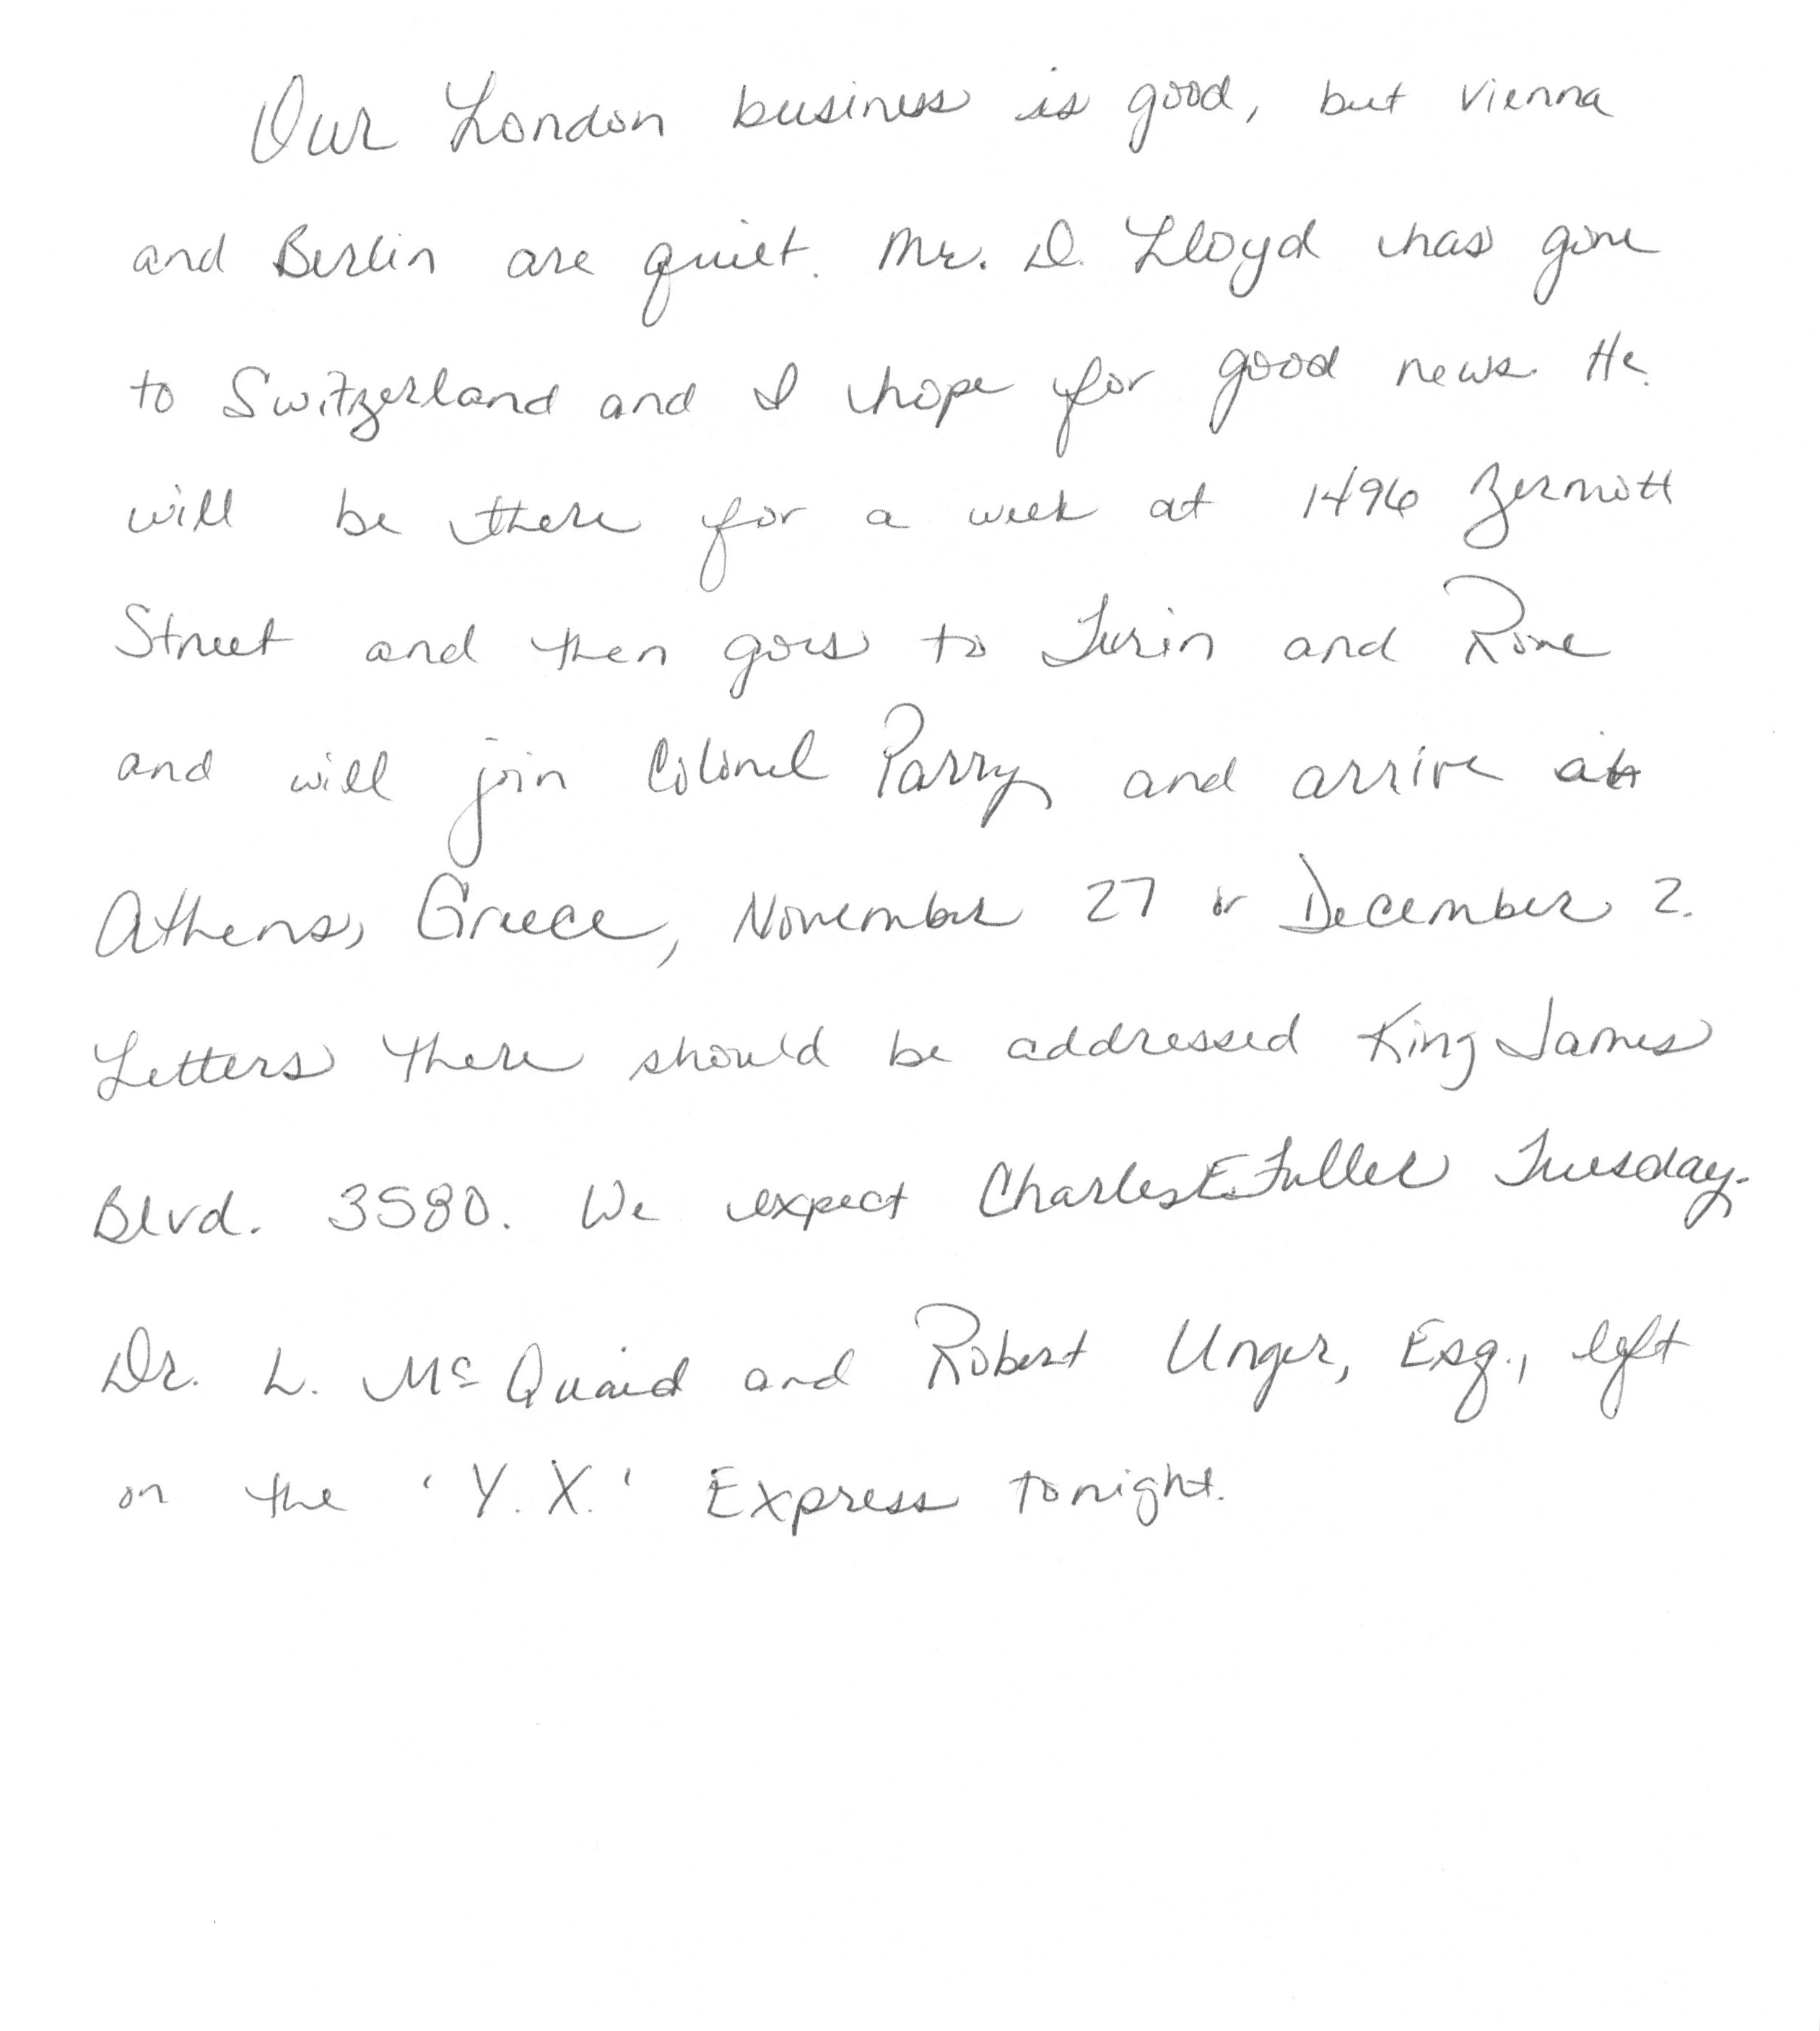 Our London business is good, but Vienna
and Berlin are quiet. Mr. D. Lloyd has gone
to Switzerland and I hope for good news. He
will be there for a week at 1496 Zermott
Street and then goes to Turin and Rome
and will join Colonel Parry and arrive at
Athens, Greece, November 27 or December 2.
Letters there should be addressed King James
Blvd. 3580. We expect Charles E. Fuller Tuesday.
Dr. L. McQuaid and Robert Unger, Esq., left
on the 'Y. X.' Express tonight.